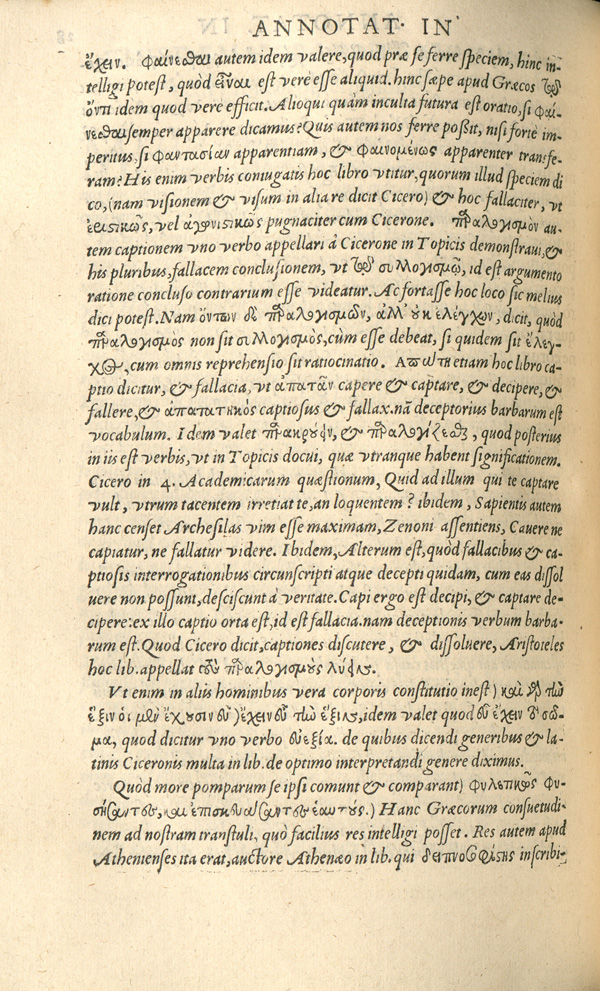 ANNOTAT. IN
ἔχειν. Φαίνεσθαι autem idem valere, quod præ se ferre speciem, hinc in-
telligi potest, quòd εἶναι est vere esse aliquid. hinc sæpe apud Græcos τῷ
ὄντι idem quod vere efficit. Alioqui quàm inculta futura est oratio, si φαί-
νεσθαι semper apparere dicamus? Quis autem nos ferre poßit, nisi fortè im-
peritus, si φαντασίαν apparentiam, & φαινομένως apparenter transfe-
ram? His enim verbis coniugatis hoc libro vtitur, quorum illud speciem di
co, (nam visionem & visum in alia re dicit Cicero) & hoc fallaciter, vt
ἐριστικῶς, vel ἀγωνιστικῶς pugnaciter cum Cicerone. παραλογισμὸν au-
tem captionem vno verbo appellari à Cicerone in Topicis demonstraui, &
his pluribus, fallacem conclusionem, vt τῷ συλλογισμῷ, id est argumento
ratione concluso contrarium esse videatur. Ac fortasse hoc loco sic melius
dici potest. Nam ὄντων δὲ παραλογισμῶν, ἀλλ' οὐκ ἐλέγχων, dicit, quòd
παραλογισμὸς non sit συλλογισμὸς, cùm esse debeat, si quidem sit ἔλεγ-
χος, cum omnis reprehensio sit ratiocinatio. Ἀπάτη etiam hoc libro ca-
ptio dicitur, & fallacia, vt ἀπατᾶν capere & captare, & decipere, &
fallere, & ἀπατητικὸς captiosus & fallax. nā deceptorius barbarum est
vocabulum. Idem valet παρακρούειν, & παραλογίζεσθαι, quod posterius
in iis est verbis, vt in Topicis docui, quæ vtranque habent significationem.
Cicero in 4. Academicarum quæstionum, Quid ad illum qui te captare
vult, vtrum tacentem irretiat te, an loquentem? ibidem, Sapientis autem
hanc censet Archesilas vim esse maximam, Zenoni assentiens, Cauere ne
capiatur, ne fallatur videre. Ibidem, Alterum est, quòd fallacibus & ca-
ptiosis interrogationibus circunscripti atque decepti quidam, cum eas dissol
uere non possunt, desciscunt à veritate. Capi ergo est decipi, & captare de-
cipere: ex illo captio orta est, id est fallacia. nam deceptionis verbum barba-
rum est. Quod Cicero dicit, captiones discutere, & dissoluere, Aristoteles
hoc lib. appellat τοὺς παραλογισμοὺς λύσεις.
Vt enim in aliis hominibus vera corporis constitutio inest) καὶ γὰρ τὼ
ἕξιν οἱ μὲν ἔχουσιν εὖ) ἔχειν εὖ τὼ ἕξιν, idem valet quod εὖ ἔχειν τὸ σῶ-
μα, quod dicitur vno verbo εὐεξία. de quibus dicendi generibus & la-
tinis Ciceronis multa in lib. de optimo interpretandi genere diximus.
Quòd more pomparum se ipsi comunt & comparant) φυλετικῶς φυ-
σήσαντες, καὶ ἐπισκευάσαντες ἑαυτούς.) Hanc Græcorum consuetudi-
nem ad nostram transtuli, quò facilius res intelligi posset. Res autem apud
Athenienses ita erat, auctore Athenæo in lib. qui δειπνοσοφιστὴς inscribi-